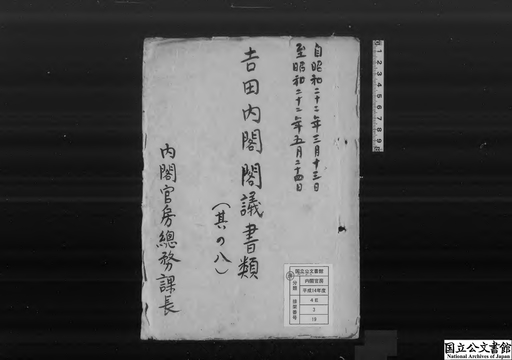 自昭和二十二年三月十三日
至昭和二十二年五月二十四日
吉田内閣閣議書類
(其の八)
内閣官房總務課長
国立公文書館
分類
内閣官房
平成14年度
4E
3
19
排架番号
国立公文書館
National Archives of Japan